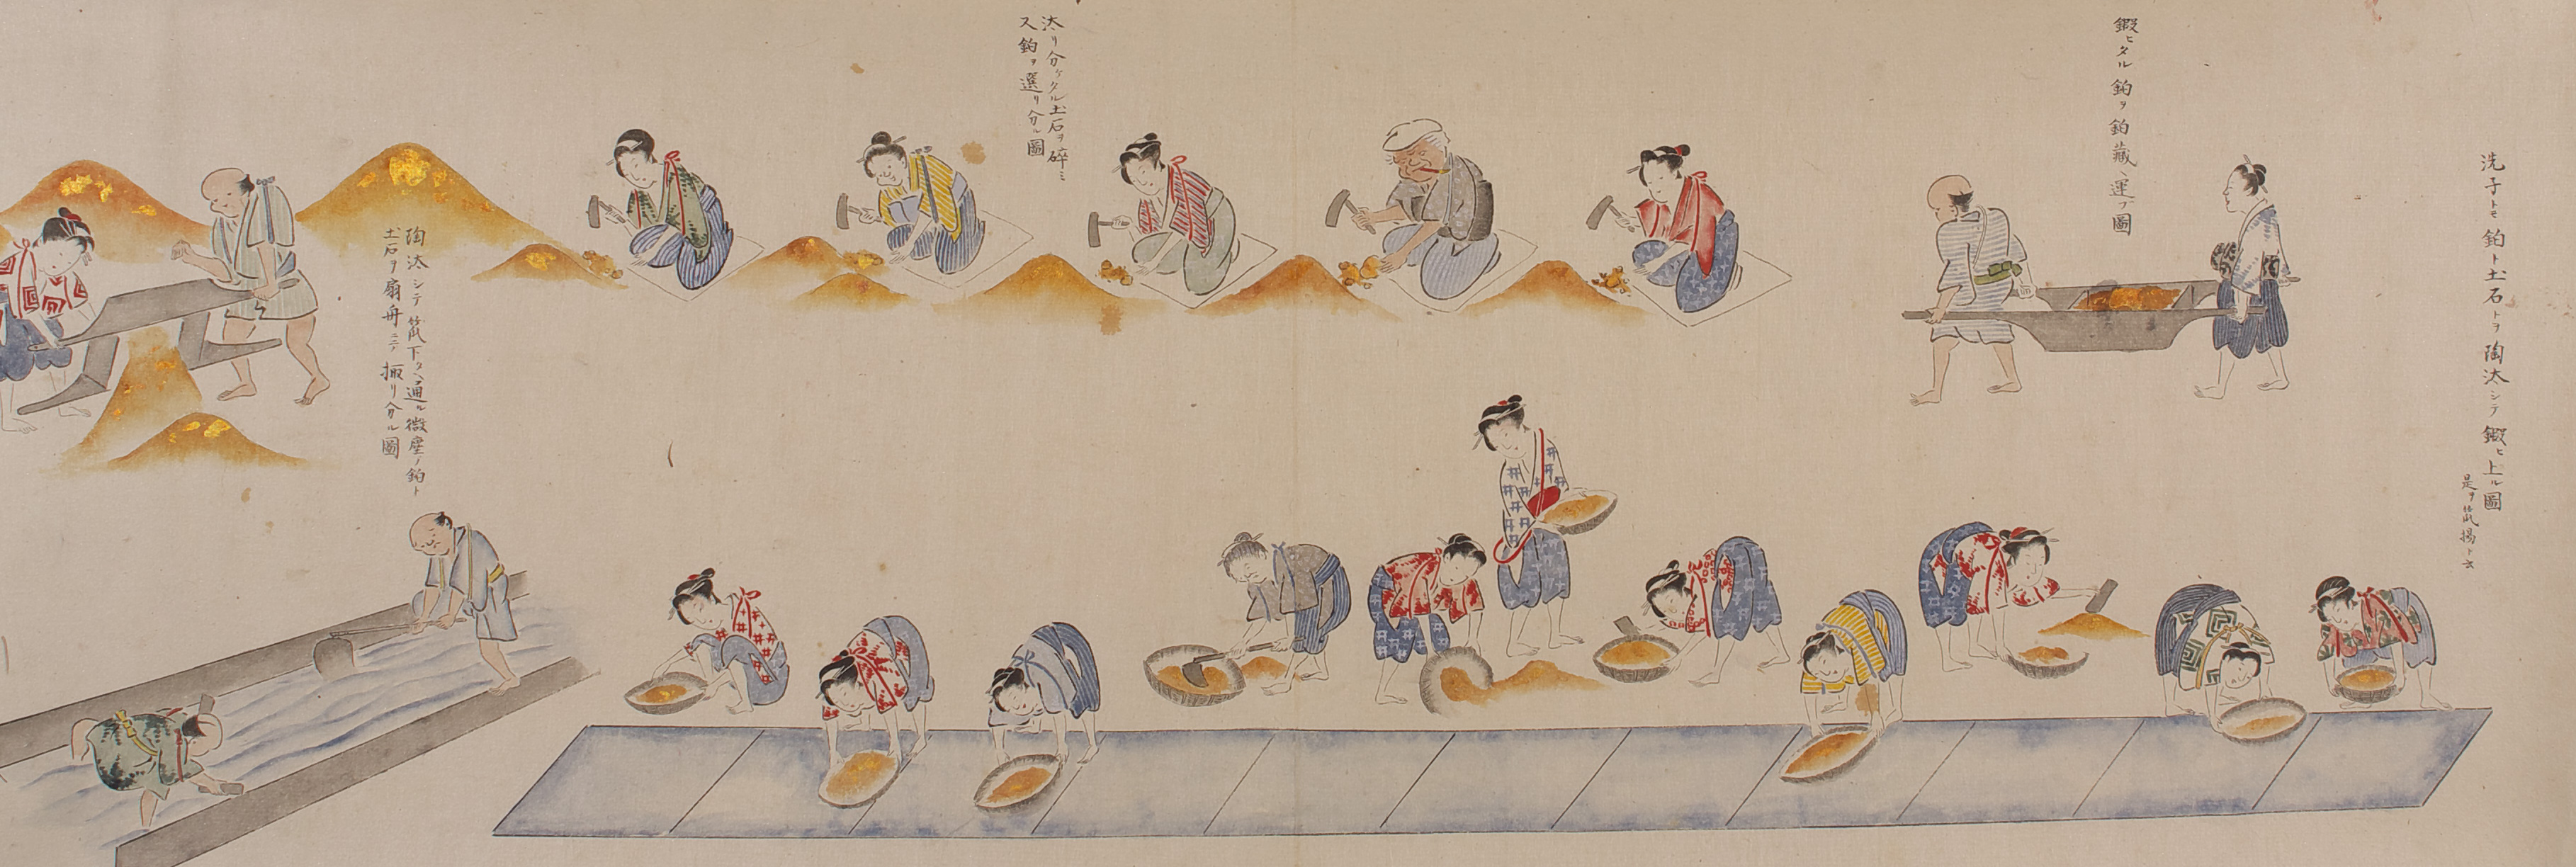 洗子トモ鉑ト土石トヲ陶汰シテ鍜ヒ上ル圖
是ヲ笊揚ト云
鍜ヒタル鉑ヲ鉑藏ヘ運フ圖
汰リ分ケタル土石ヲ碎ミ
ス鉑ヲ選リ分ル圖
陶汰シテ笊下タヘ通ル微塵ノ鉑ト
土石ヲ扇舟ニテ掫リ分ル圖